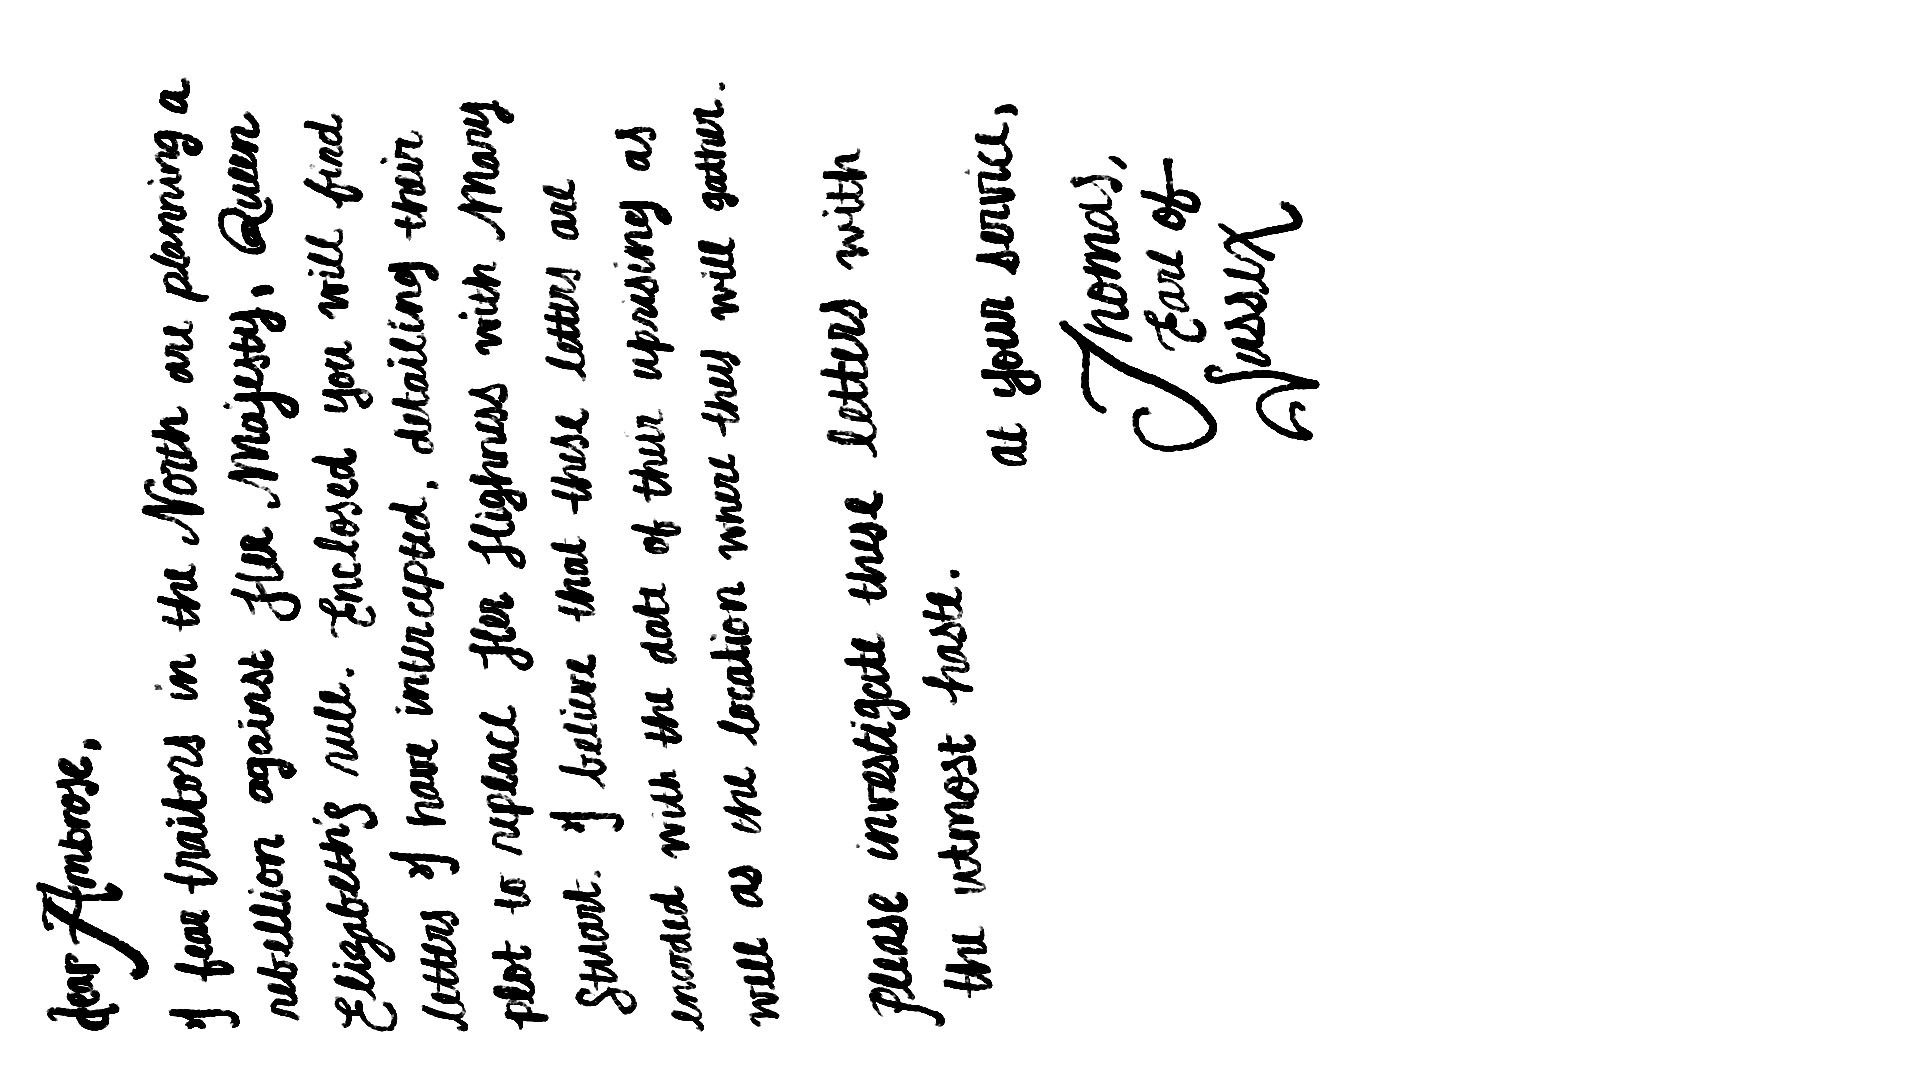 dear Ambrose,
I fear traitors in the North are planning a
rebellion against Her Majesty, Queen
Elizabeth's rule. Enclosed you will find
letters I have intercepted, detailing their
plot to replace Her Highness with Mary
Stuart. I believe that these letters are
encoded with the date of their uprising as
well as the location where they will gather.
Please investigate these letters with
the utmost haste.
at your service,
Thomas,
Earl of
Sussex